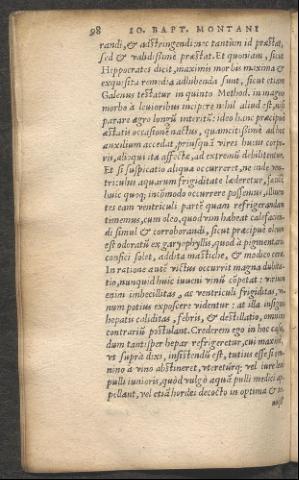 98 IO. BAPT. MONTANI
randi, & adstringendi: nec tantùm id præstat,
sed & validißimè præstat. Et quoniam, sicut
Hippocrates dicit, maximis morbis maxima &
exquisita remedia adhibenda sunt, sicut etiam
Galenus testatur in quinto Method. in magno
morbo à leuioribus incipere nihil aliud est, nisi
parare ægro longũ interitũ: ideo hanc præcipuè
æstatis occasionẽ nactus, quamcitißimè adhoc
auxilium accedat, priusquã vires huius corpo-
ris, alioqui ita affectæ, ad extremũ debilitentur.
Et si suspicatio aliqua occurreret, ne inde ven-
triculus aquarum frigiditate læderetur, facilè
huic quoq; incõmodo occurrere possemus, illinen-
tes eam ventriculi partẽ quam refrigerandam
timemus, cum oleo, quod vim habeat calefacien-
di simul & corroborandi, sicut præcipuè oleum
est odoratũ ex garyophyllis, quod à pigmentarijs
confici solet, addita mastiche, & modico cera.
In ratione autẽ victus occurrit magna dubita-
tio, nunquid huic iuueni vinũ cõpetat: vàrium
enim imbecillitas, ac ventriculi frigiditas, vi-
num potius exposcere videntur: at illa insignis
hepatis caliditas, febris, & destillatio, omnino
contrariũ postulant. Crederem ego in hoc casu,
dum tantisper hepar refrigeretur, cui maximè,
vt suprà dixi, insistendũ est, tutius esse si om-
nino à vino abstineret, vtereturq; vel iure
pulli iunioris, quòd vulgò aquã pulli medici ap-
pellant, vel etiã hordei decocto in optima &